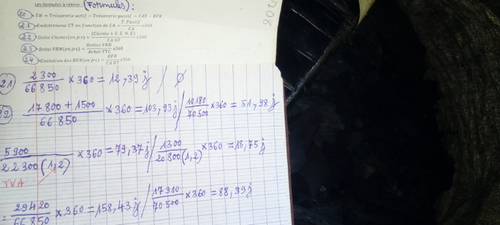 Les formules à retenir : (Formules):
20 TN = Trésorerie actif – Trésorerie passif = FRF – BFR
21 Endettement CT en fonction du CA = T.Passif / CA x360
22 Délai Clients(en jrs) = (Clients + E.E.N.E) / CA HT x360
23 Délai FRN(en jrs) = Dettes FRN / Achat TTC x360
24 Rotation des BFR(en jrs) = BFR / CA HT x360
21) 2300 / 66850 × 360 = 12,39 j / 0
17800 + 1500 / 66850 × 360 = 103,93 j / 10180 / 70500 × 360 = 51,98 j
5900 / 22300 (1,2) × 360 = 79,37 j / 1300 / 20800 (1,2) × 360 = 18,75 j
TVA
= 29420 / 66850 × 360 = 158,43 j / 17910 / 70500 × 360 = 88,99 j